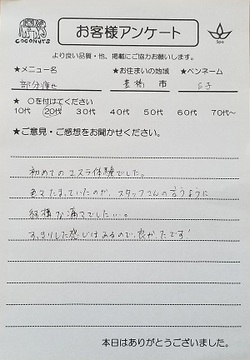 COCONUTS
お客様アンケート
より良い品質・他、掲載にご協力お願いします。
★メニュー名 ★お住まいの地域 ★ペンネーム
部分痩せ 豊橋 市 S子
★ ○を付けてください
10代 20代 30代 40代 50代 60代 70代~
★ご意見・ご感想をお聞かせください。
初めてのエステ体験でした。
スタッフさんの言うように
結構な痛さでした…。
すっきりした感じはあるので、良かったです!
本日はありがとうございました。